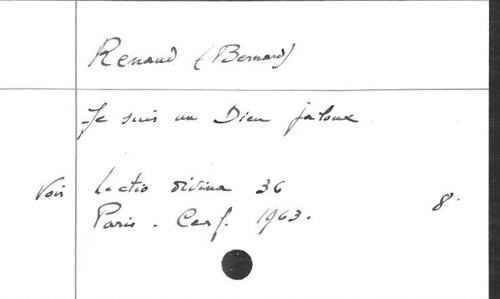 Renaud (Bernard)
Je suis un Dieu jaloux
Voir Lectio divina 36
Paris. Cerf. 1963. 8°